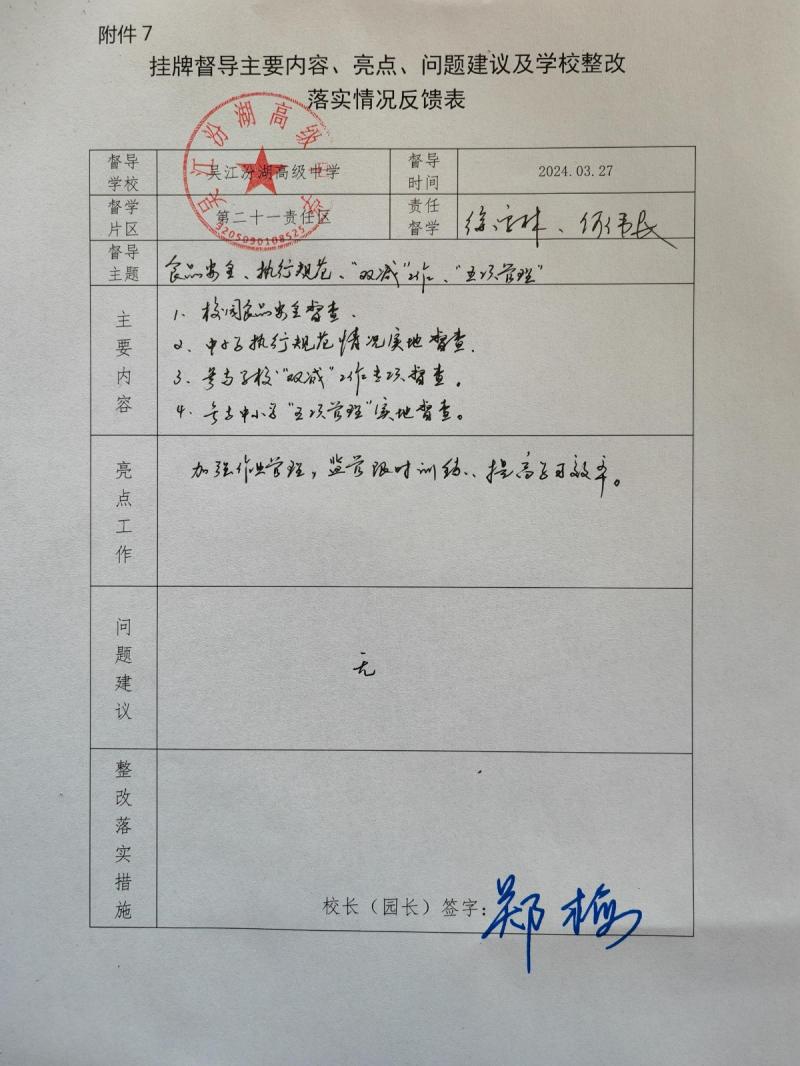 附件7
挂牌督导主要内容、亮点、问题建议及学校整改
落实情况反馈表
督导学校 吴江汾湖高级中学 督导时间 2024.03.27
督学片区 第二十一责任区 责任督学
督导主题 食品安全、执行规范、“双减”工作、“五项管理”
主要内容
1、校园食品安全督查.
2、中小学执行规范情况实地督查.
3、义务学校“双减”工作专项督查。
4、义务中小学“五项管理”实地督查。
亮点工作
加强作业管理，监管限时训练、提高学习效率。
问题建议
无
整改落实措施
校长（园长）签字：郑梅
吴江汾湖高级中学
3205090108525